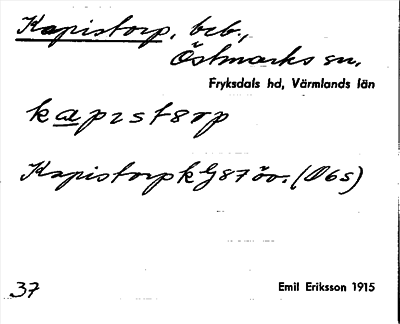 Kapistorp, beb.,
Östmarks sn,
Fryksdals hd, Värmlands län
kapıstårp
Kapistorp k G 87 öv. (O6s)
37
Emil Eriksson 1915